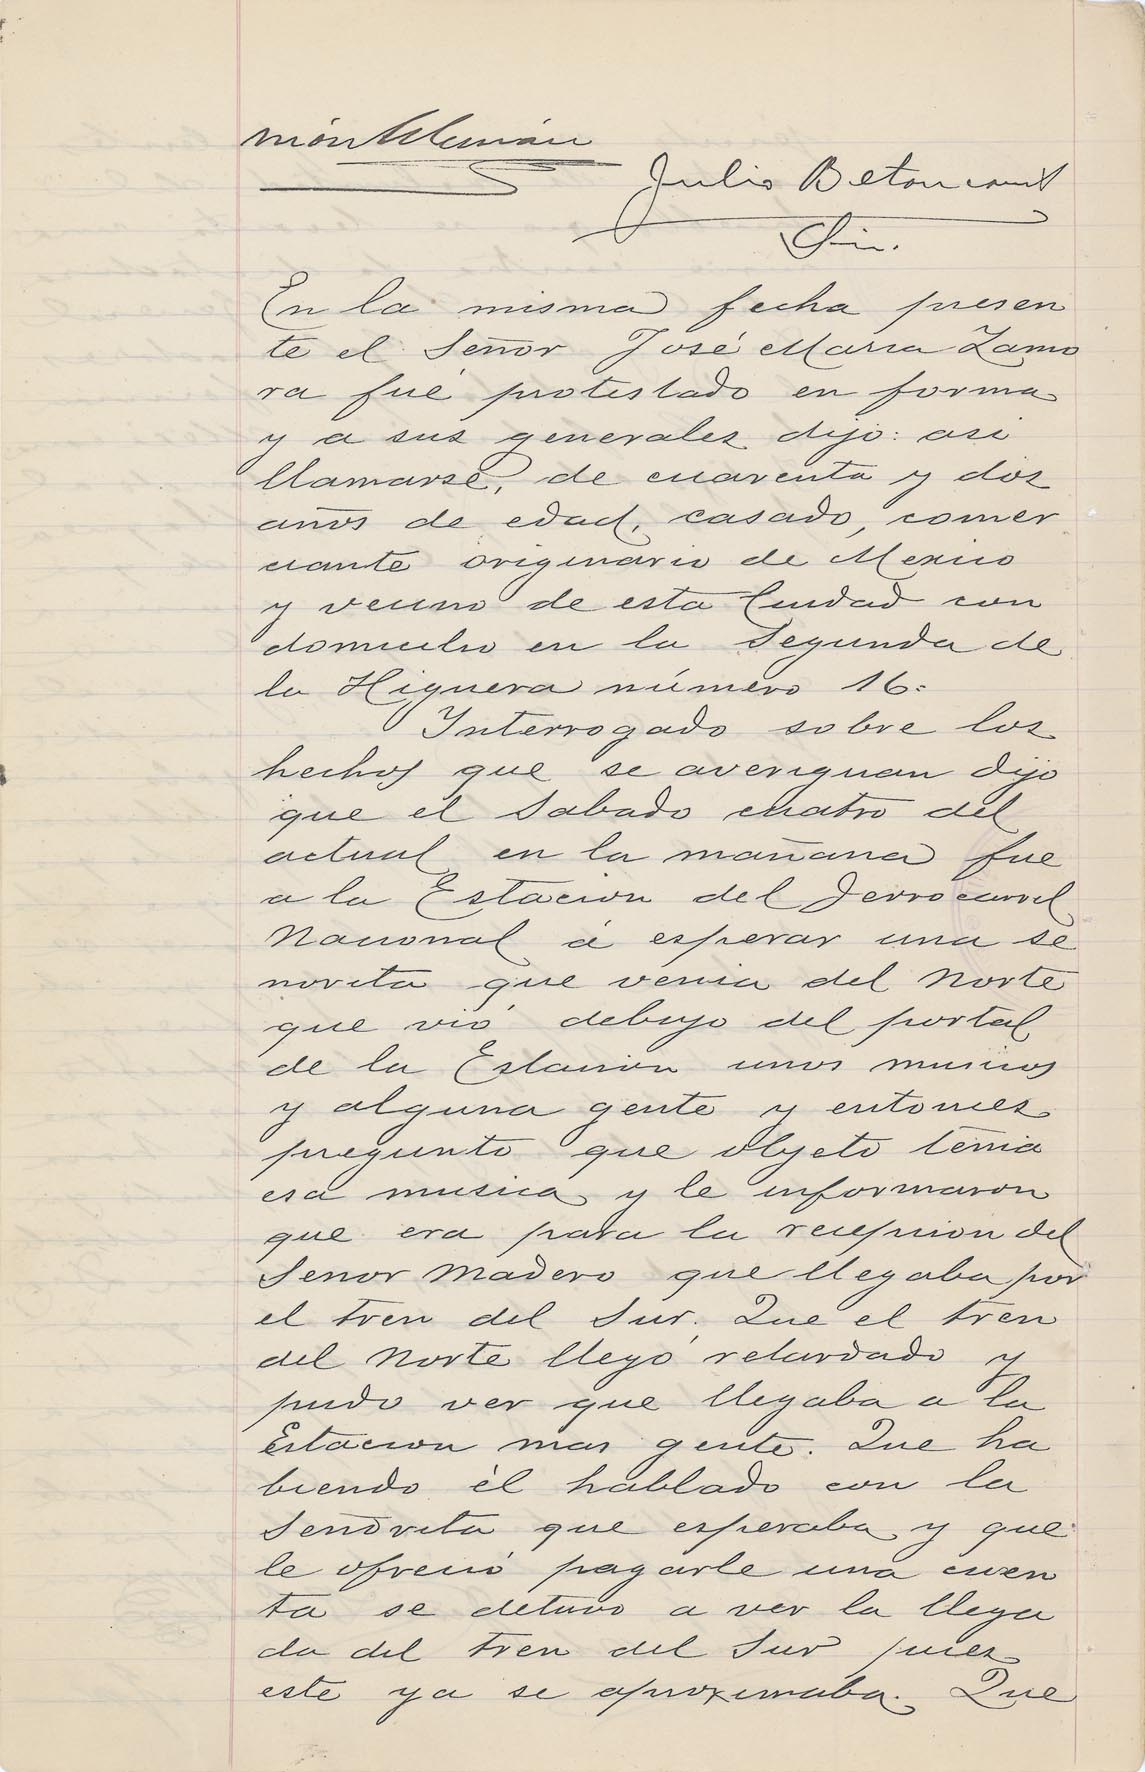 Julio Betancourt
En la misma fecha presen
te el Señor José Maria Zamo
ra fué protestado en forma
y a sus generales dijo: asi
llamarse, de cuarenta y dos
años de edad, casado, comer
ciante originario de Mexico
y vecino de esta Ciudad con
domicilio en la Segunda de
la Higuera número 16.
Interrogado sobre los
hechos que se averiguan dijo
que el Sabado cuatro del
actual en la mañana fue
a la Estacion del Ferrocarril
Nacional á esperar una se
norita que venia del Norte
que vió debajo del portal
de la Estacion unos musicos
y alguna gente y entonces
pregunto que objeto tenia
esa musica y le informaron
que era para la recepcion del
Senor Madero que llegaba por
el tren del Sur. Que el tren
del Norte llegó retardado y
pudo ver que llegaba a la
Estacion mas gente. Que ha
biendo él hablado con la
Señorita que esperaba y que
le ofreció pagarle una cuen
ta se detuvo a ver la llega
da del tren del Sur pues
este ya se aproximaba. Que